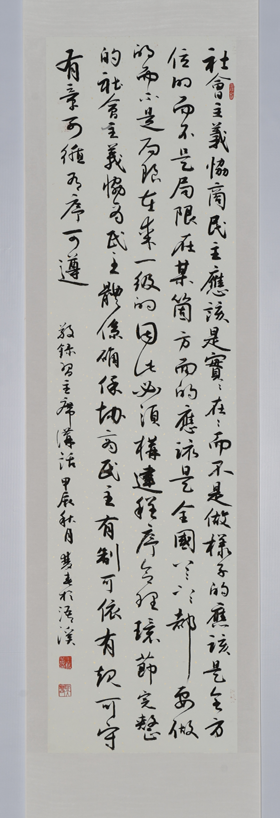 社會主義協商民主應該是實實在在而不是做樣子的應該是全方
位的而不是局限在某箇方面的應該是全國上上下下都要做
的而不是局限在某一級的因此必須構建程序合理環節完整
的社會主義協商民主體係確保協商民主有制可依有規可守
有章可循有序可遵
敬錄習主席講話甲辰秋月 於浯溪